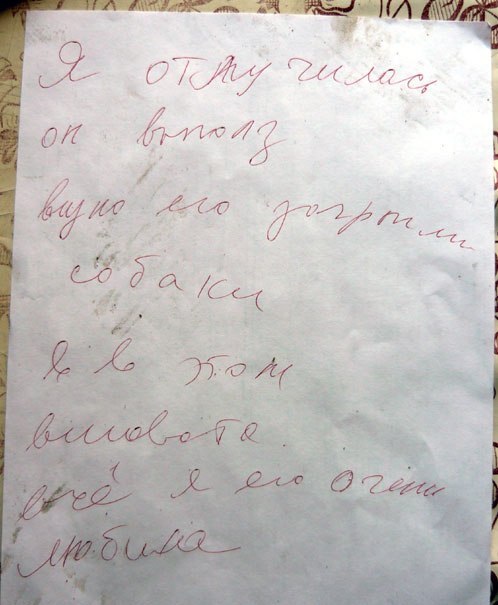 Я отлучилась
он выполз
видно его загрызли
собаки
я в этом
виновата
всё я его очень
любила